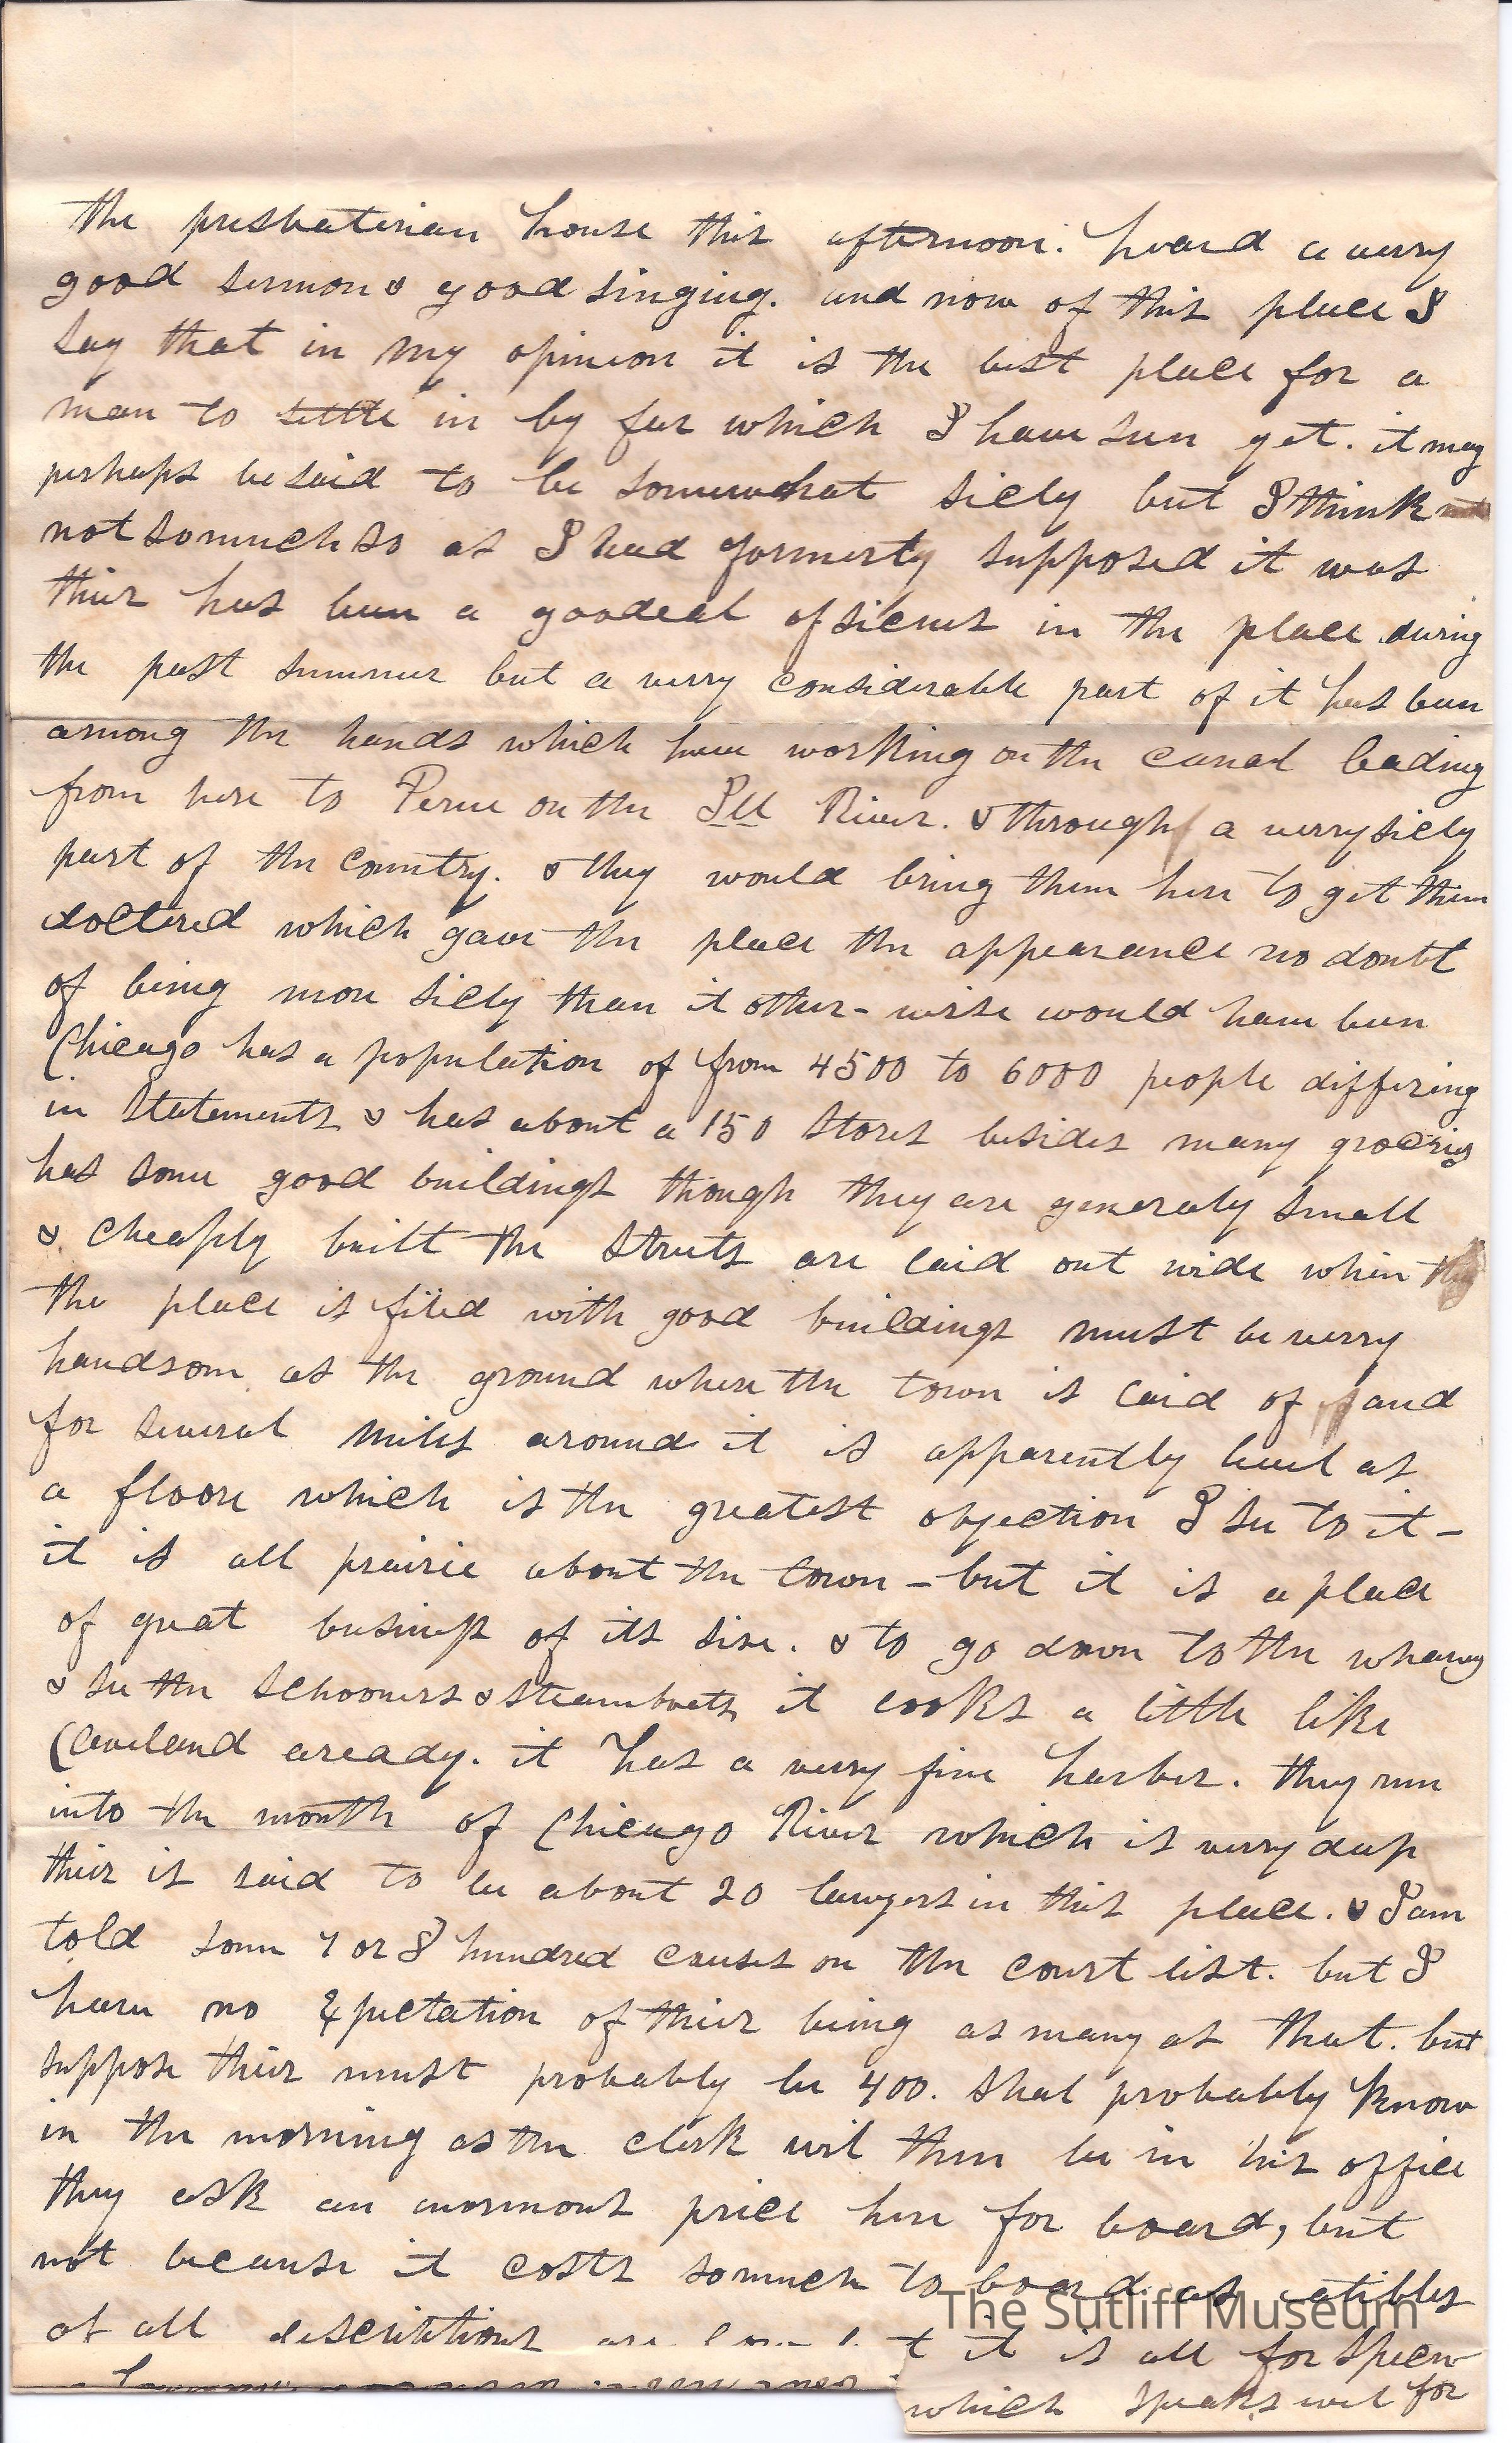 the presbaterian house this afternoon. heard a verry
good sermon & good singing. and now of this place I
say that in my opinion it is the best place for a
man to settle in by far which I have seen yet. it may
perhaps be said to be somewhat sicly but I think not
not somuch so as I had formerly supposed it was
thier has been a goodeal of sicnes in the place during
the past summer but a verry considerable part of it has been
among the hands which have working on the canal leading
from here to Perue on the Ill River. & through a verry sicly
part of the country. & they would bring them here to get them
doctered which gave the place the appearance no doubt
of being more sicly than it other-wise would have been
Chicago has a population of from 4500 to 6000 people differing
in statements & has about a 150 stores besides many groceries
has some good buildings though they are generaly small
& cheaply built the streets are laid out wide when the
the place is filed with good buildings must be verry
handsom as the ground where the town is laid of and
for several miles around it is apparently level as
a floore which is the greatest objection I see to it-
it is all prairie about the town - but it is a place
of great business of its sise. & to go down to the wharvs
& see the schooners & steamboats it looks a little like
Cleveland aready. it has a verry fine harber. they run
into the mouth of Chicago River which is verry deep
thier is said to be about 20 lawyers in this place. & I am
told some 7 or 8 hundred causes on the court list. but I
have no Expectation of thier being as many as that. but
suppose thier must probably be 400. shal probably know
in the morning as the clerk wil then be in his office
they ask an enormous price here for board, but
not because it costs somuch to board as eatibles
of all descriptions are t it is all for specu
which speaks wel for
The Sutliff Museum